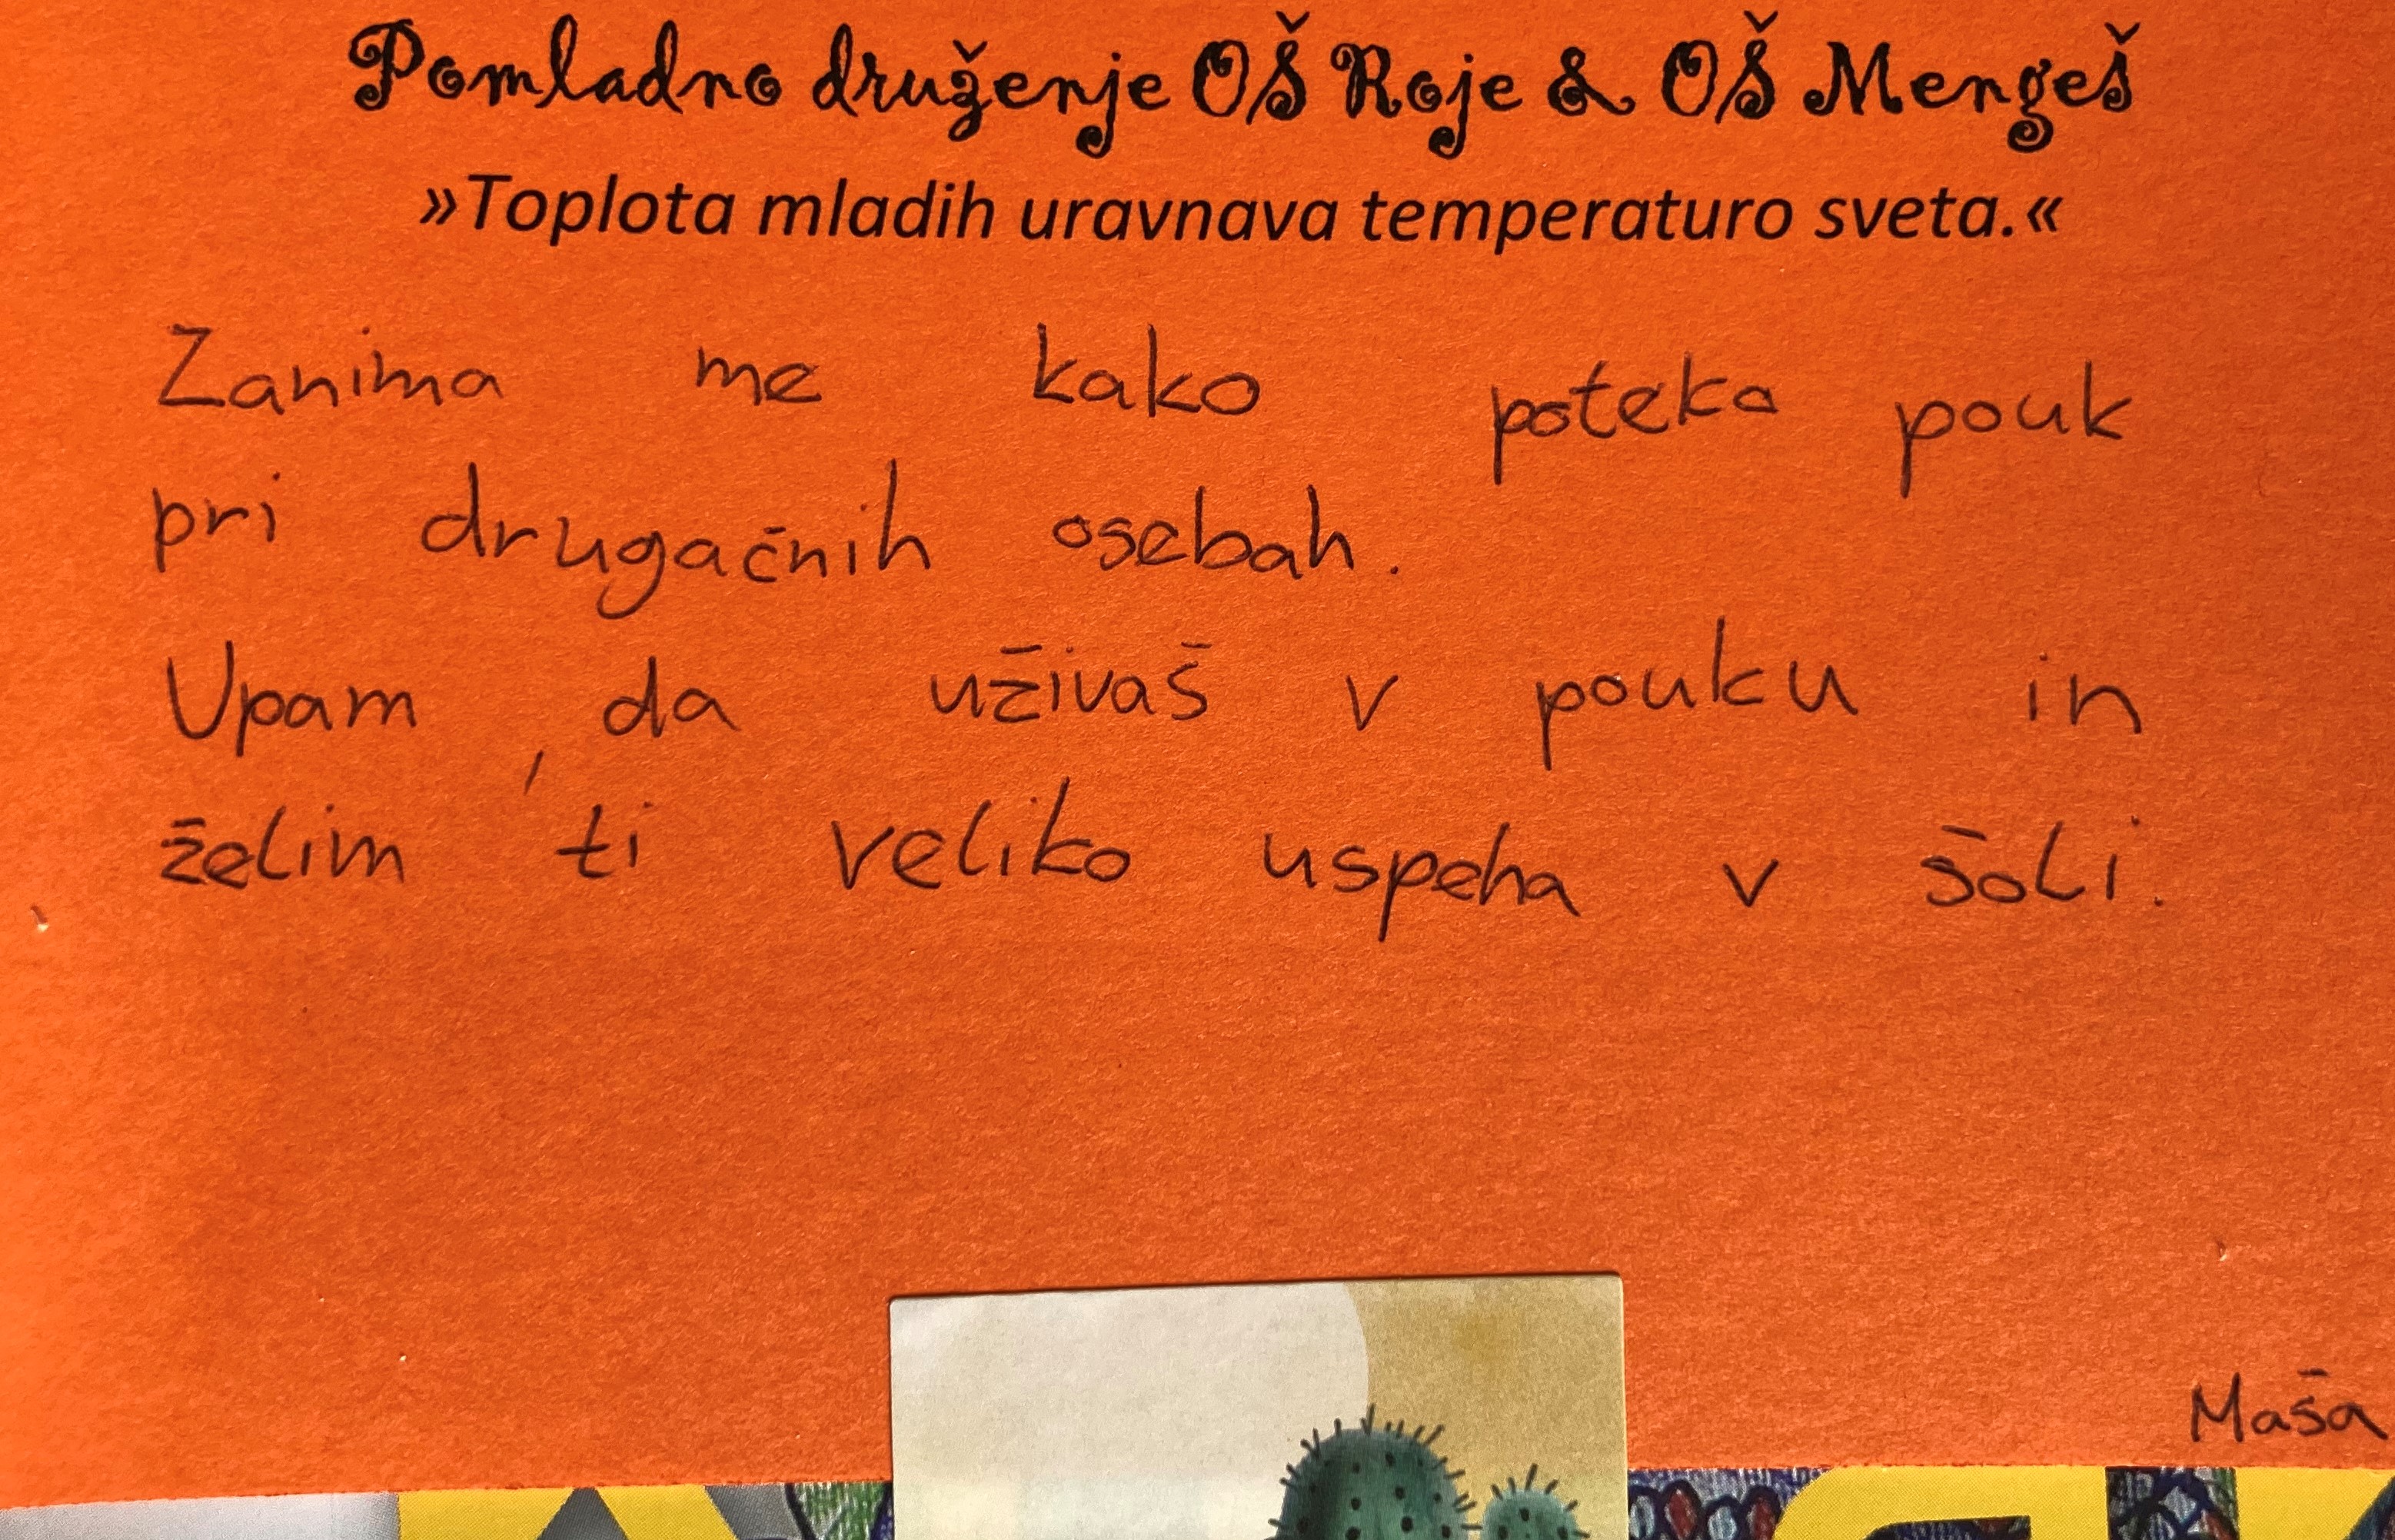 Pomladno druženje OŠ Roje & OŠ Mengeš
»Toplota mladih uravnava temperaturo sveta.«
Zanima me kako poteka pouk
pri drugačnih osebah.
Upam, da uživaš v pouku in
želim ti veliko uspeha v šoli.
Maša